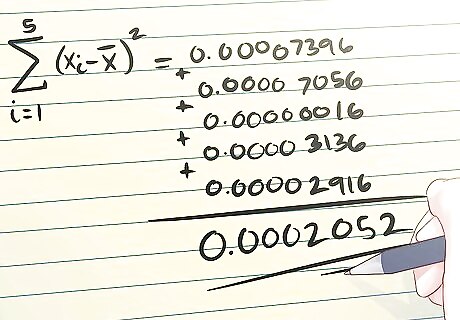 5
∑ (xᵢ-x̄)² = 0.00007396
i=1
+ 0.00007056
+ 0.00000016
+ 0.00003136
+ 0.00002916
0.0002052